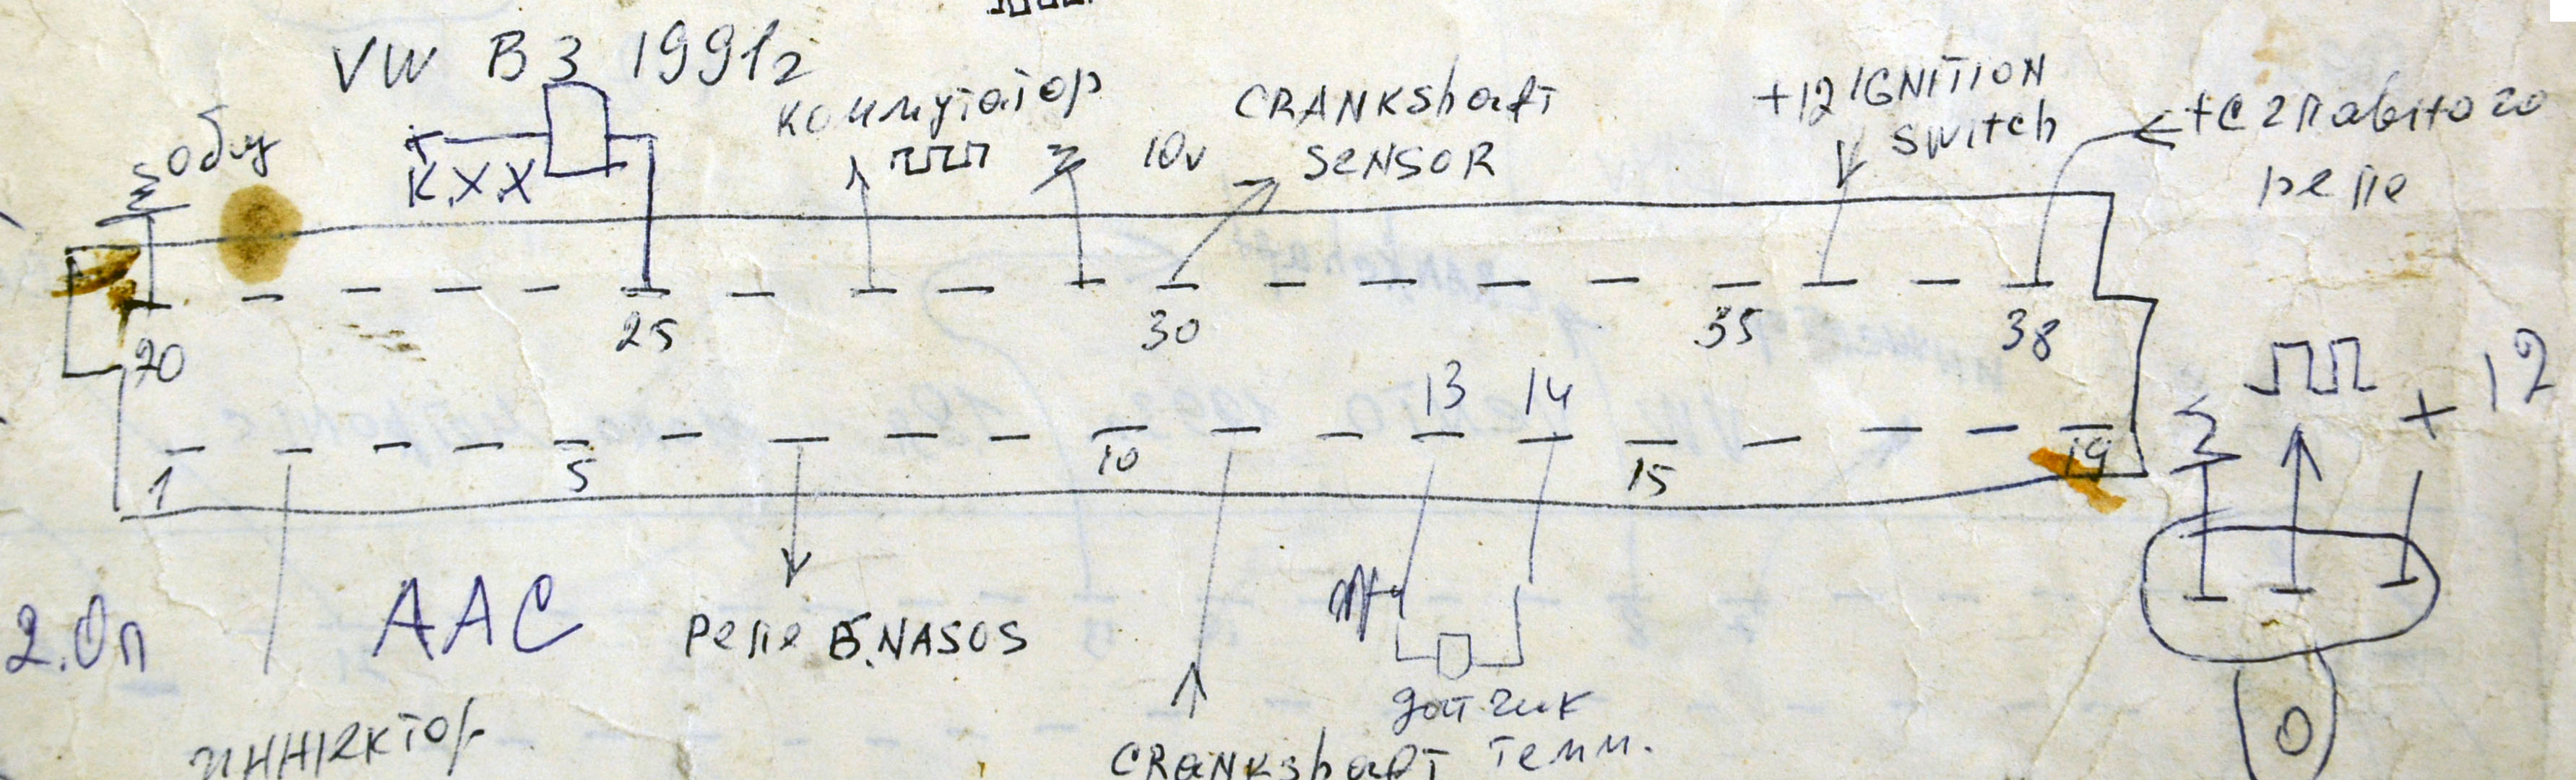 VW B3 1991г
КОММУТАТОР
CRANKShaft
+12 IGNITION
общ
К.ХХ
10v
SENSOR
Switch
+с главного
реле
20
25
30
35
38
13
14
+12
1
5
10
15
19
2.0л
AAC
Реле Б.NASOS
датчик
CRANKshaft
темп.